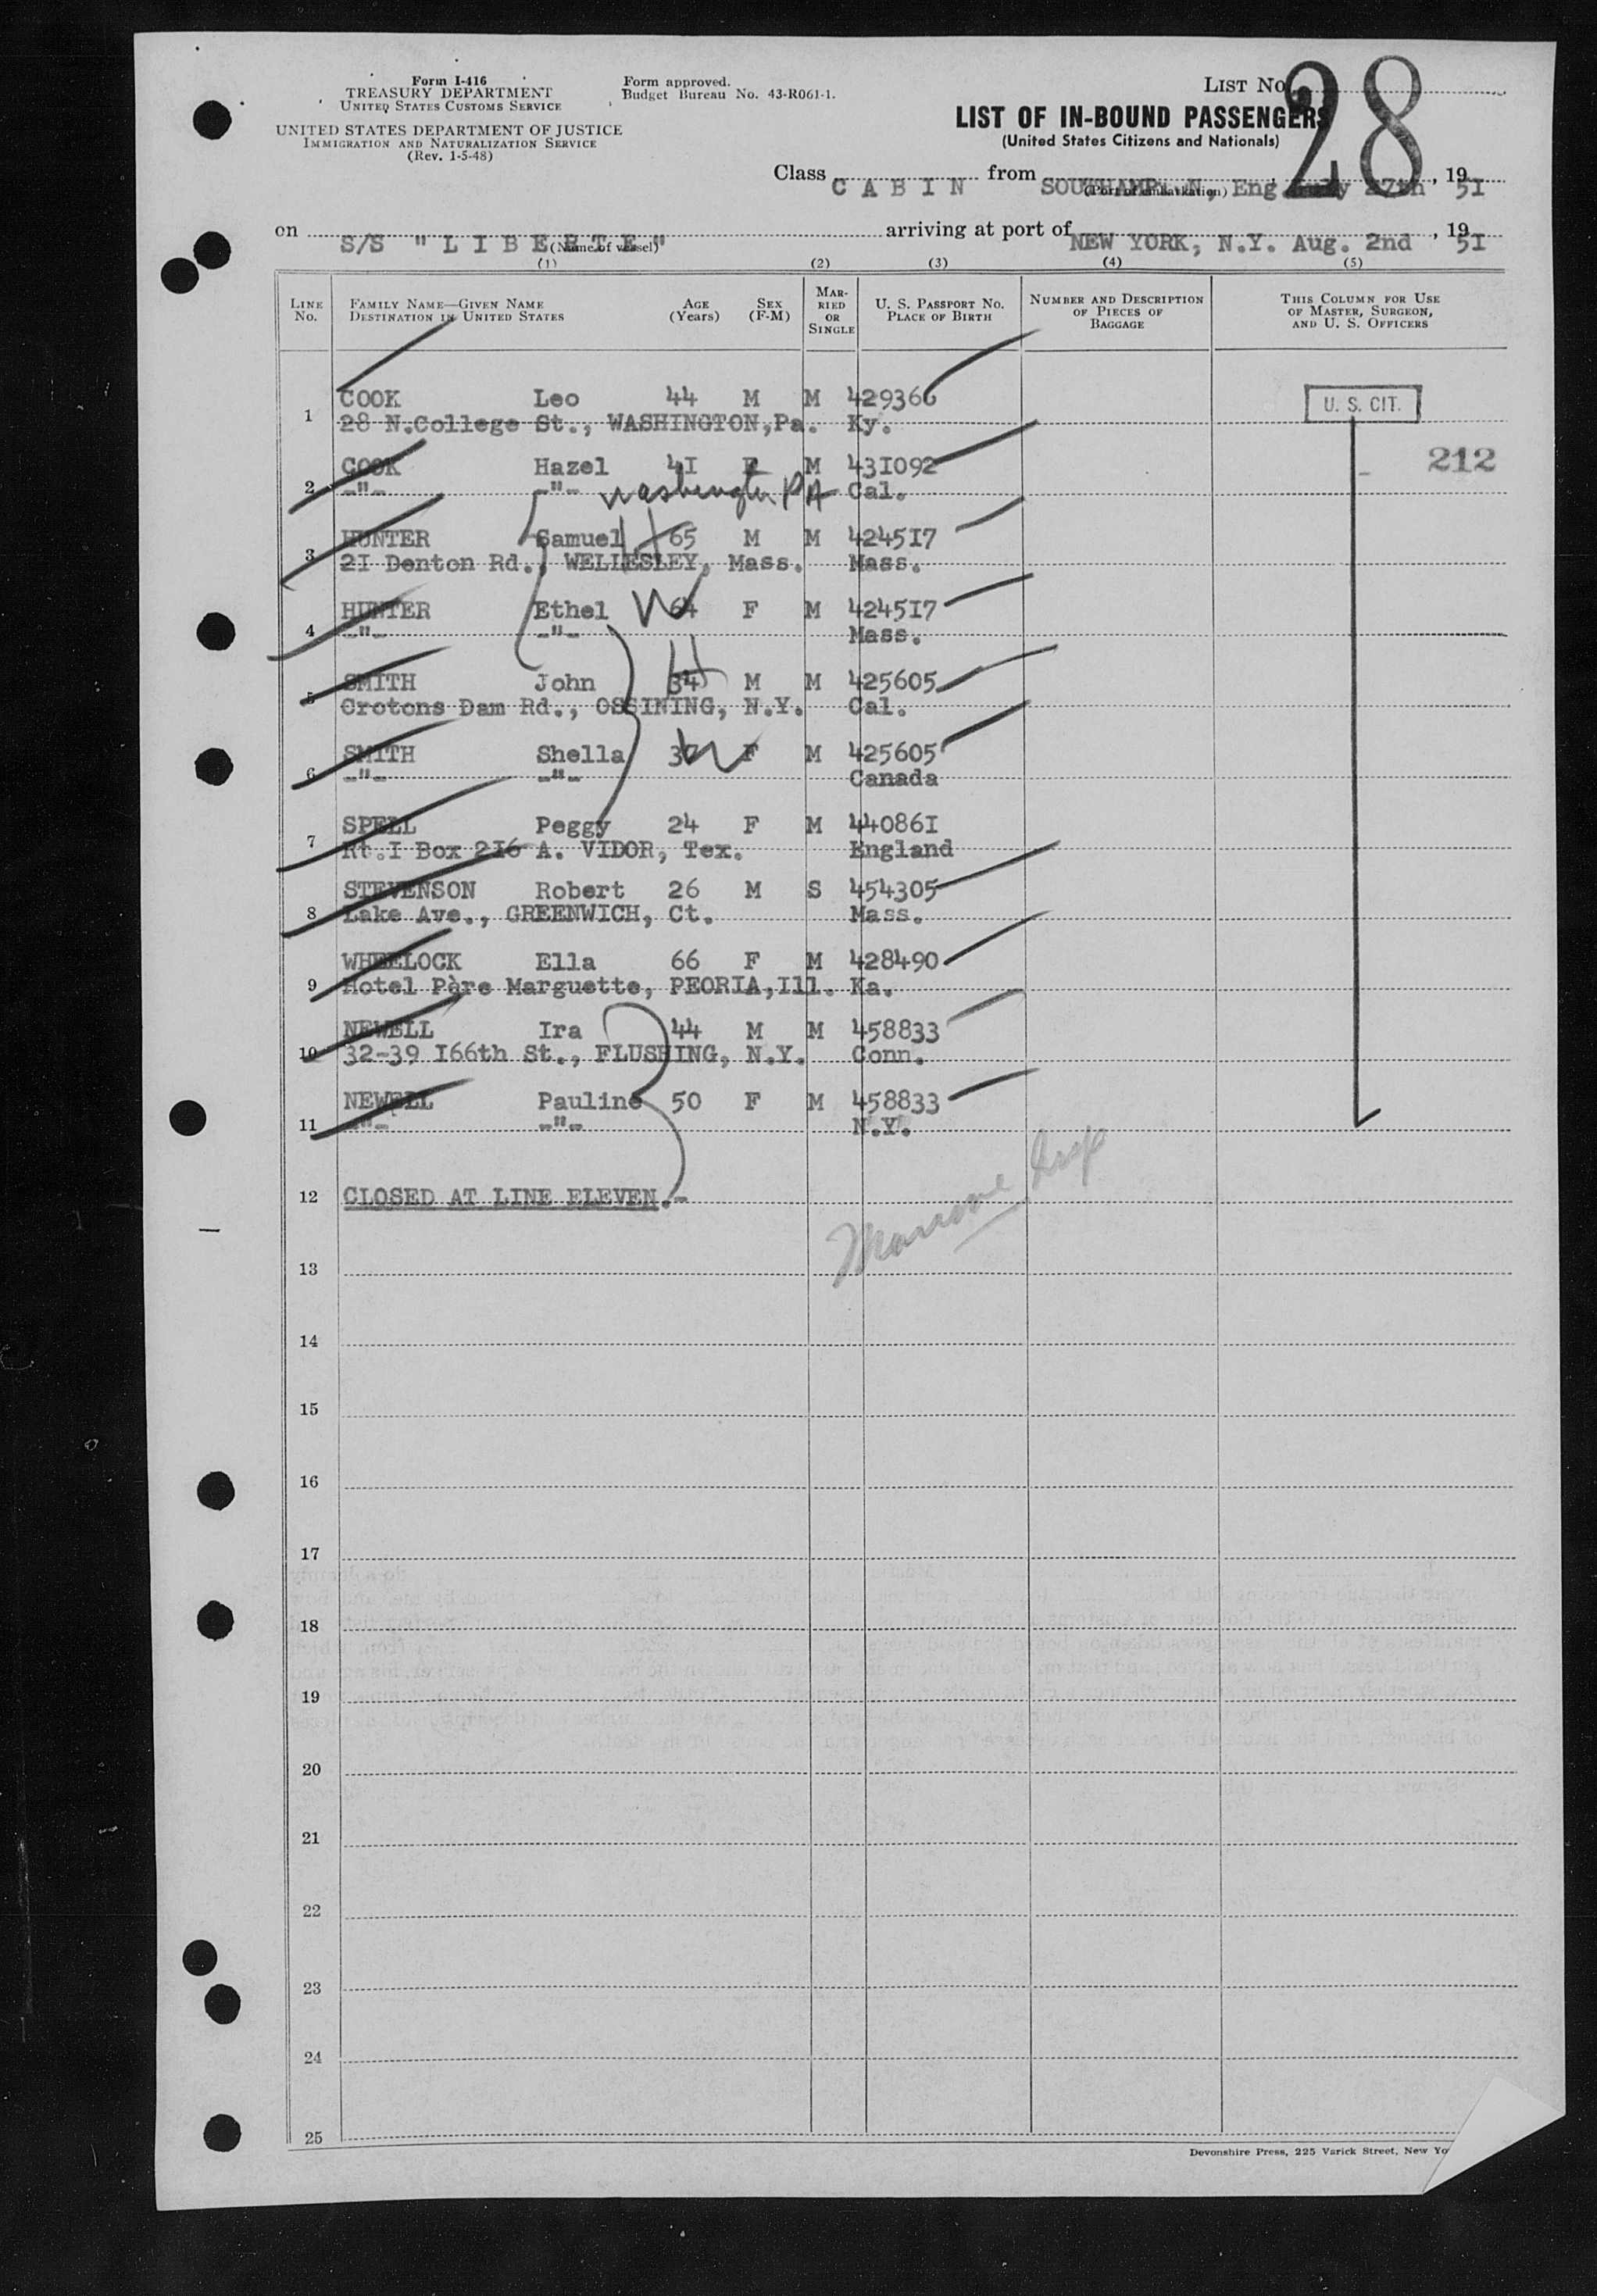 Form I-416
TREASURY DEPARTMENT
UNITED STATES CUSTOMS SERVICE
UNITED STATES DEPARTMENT OF JUSTICE
IMMIGRATION AND NATURALIZATION SERVICE
(Rev. 1-5-48)
Form approved.
Budget Bureau No. 43-R061-1.
LIST No. 28
LIST OF IN-BOUND PASSENGERS
(United States Citizens and Nationals)
Class CABIN from SOUTHAMPT.N, Eng July 27th, 1951
(Port of embarkation)
on S/S "LIBERTE" arriving at port of NEW YORK, N.Y. Aug. 2nd, 1951
(Name of vessel)
(1) (2) (3) (4) (5)
LINE No. FAMILY NAME—GIVEN NAME DESTINATION IN UNITED STATES AGE (Years) SEX (F-M) MARRIED OR SINGLE U. S. PASSPORT No. PLACE OF BIRTH NUMBER AND DESCRIPTION OF PIECES OF BAGGAGE THIS COLUMN FOR USE OF MASTER, SURGEON, AND U. S. OFFICERS
COOK Leo 44 M M 429366 U. S. CIT.
1 28 N.College St., WASHINGTON,Pa. Ky.
COOK Hazel 4I F M 43I092 212
2 -"- -"- Washington PA Cal.
HUNTER Samuel H 65 M M 4245I7
3 2I Denton Rd., WELLESLEY, Mass. Mass.
HUNTER Ethel W 64 F M 4245I7
4 -"- -"- Mass.
SMITH John H 34 M M 425605
5 Crotons Dam Rd., OSSINING, N.Y. Cal.
SMITH Shella W F M 425605
6 -"- -"- Canada
SPELL Peggy 24 F M 44086I
7 Rt.I Box 2I6 A. VIDOR, Tex. England
STEVENSON Robert 26 M S 454305
8 Lake Ave., GREENWICH, Ct. Mass.
WHEELOCK Ella 66 F M 428490
9 Hotel Père Marguette, PEORIA,Ill. Ka.
NEWELL Ira 44 M M 458833
10 32-39 I66th St., FLUSHING, N.Y. Conn.
NEWELL Pauline 50 F M 458833
11 -"- -"- N.Y.
12 CLOSED AT LINE ELEVEN.-
13
14
15
16
17
18
19
20
21
22
23
24
25
Devonshire Press, 225 Varick Street, New Yo